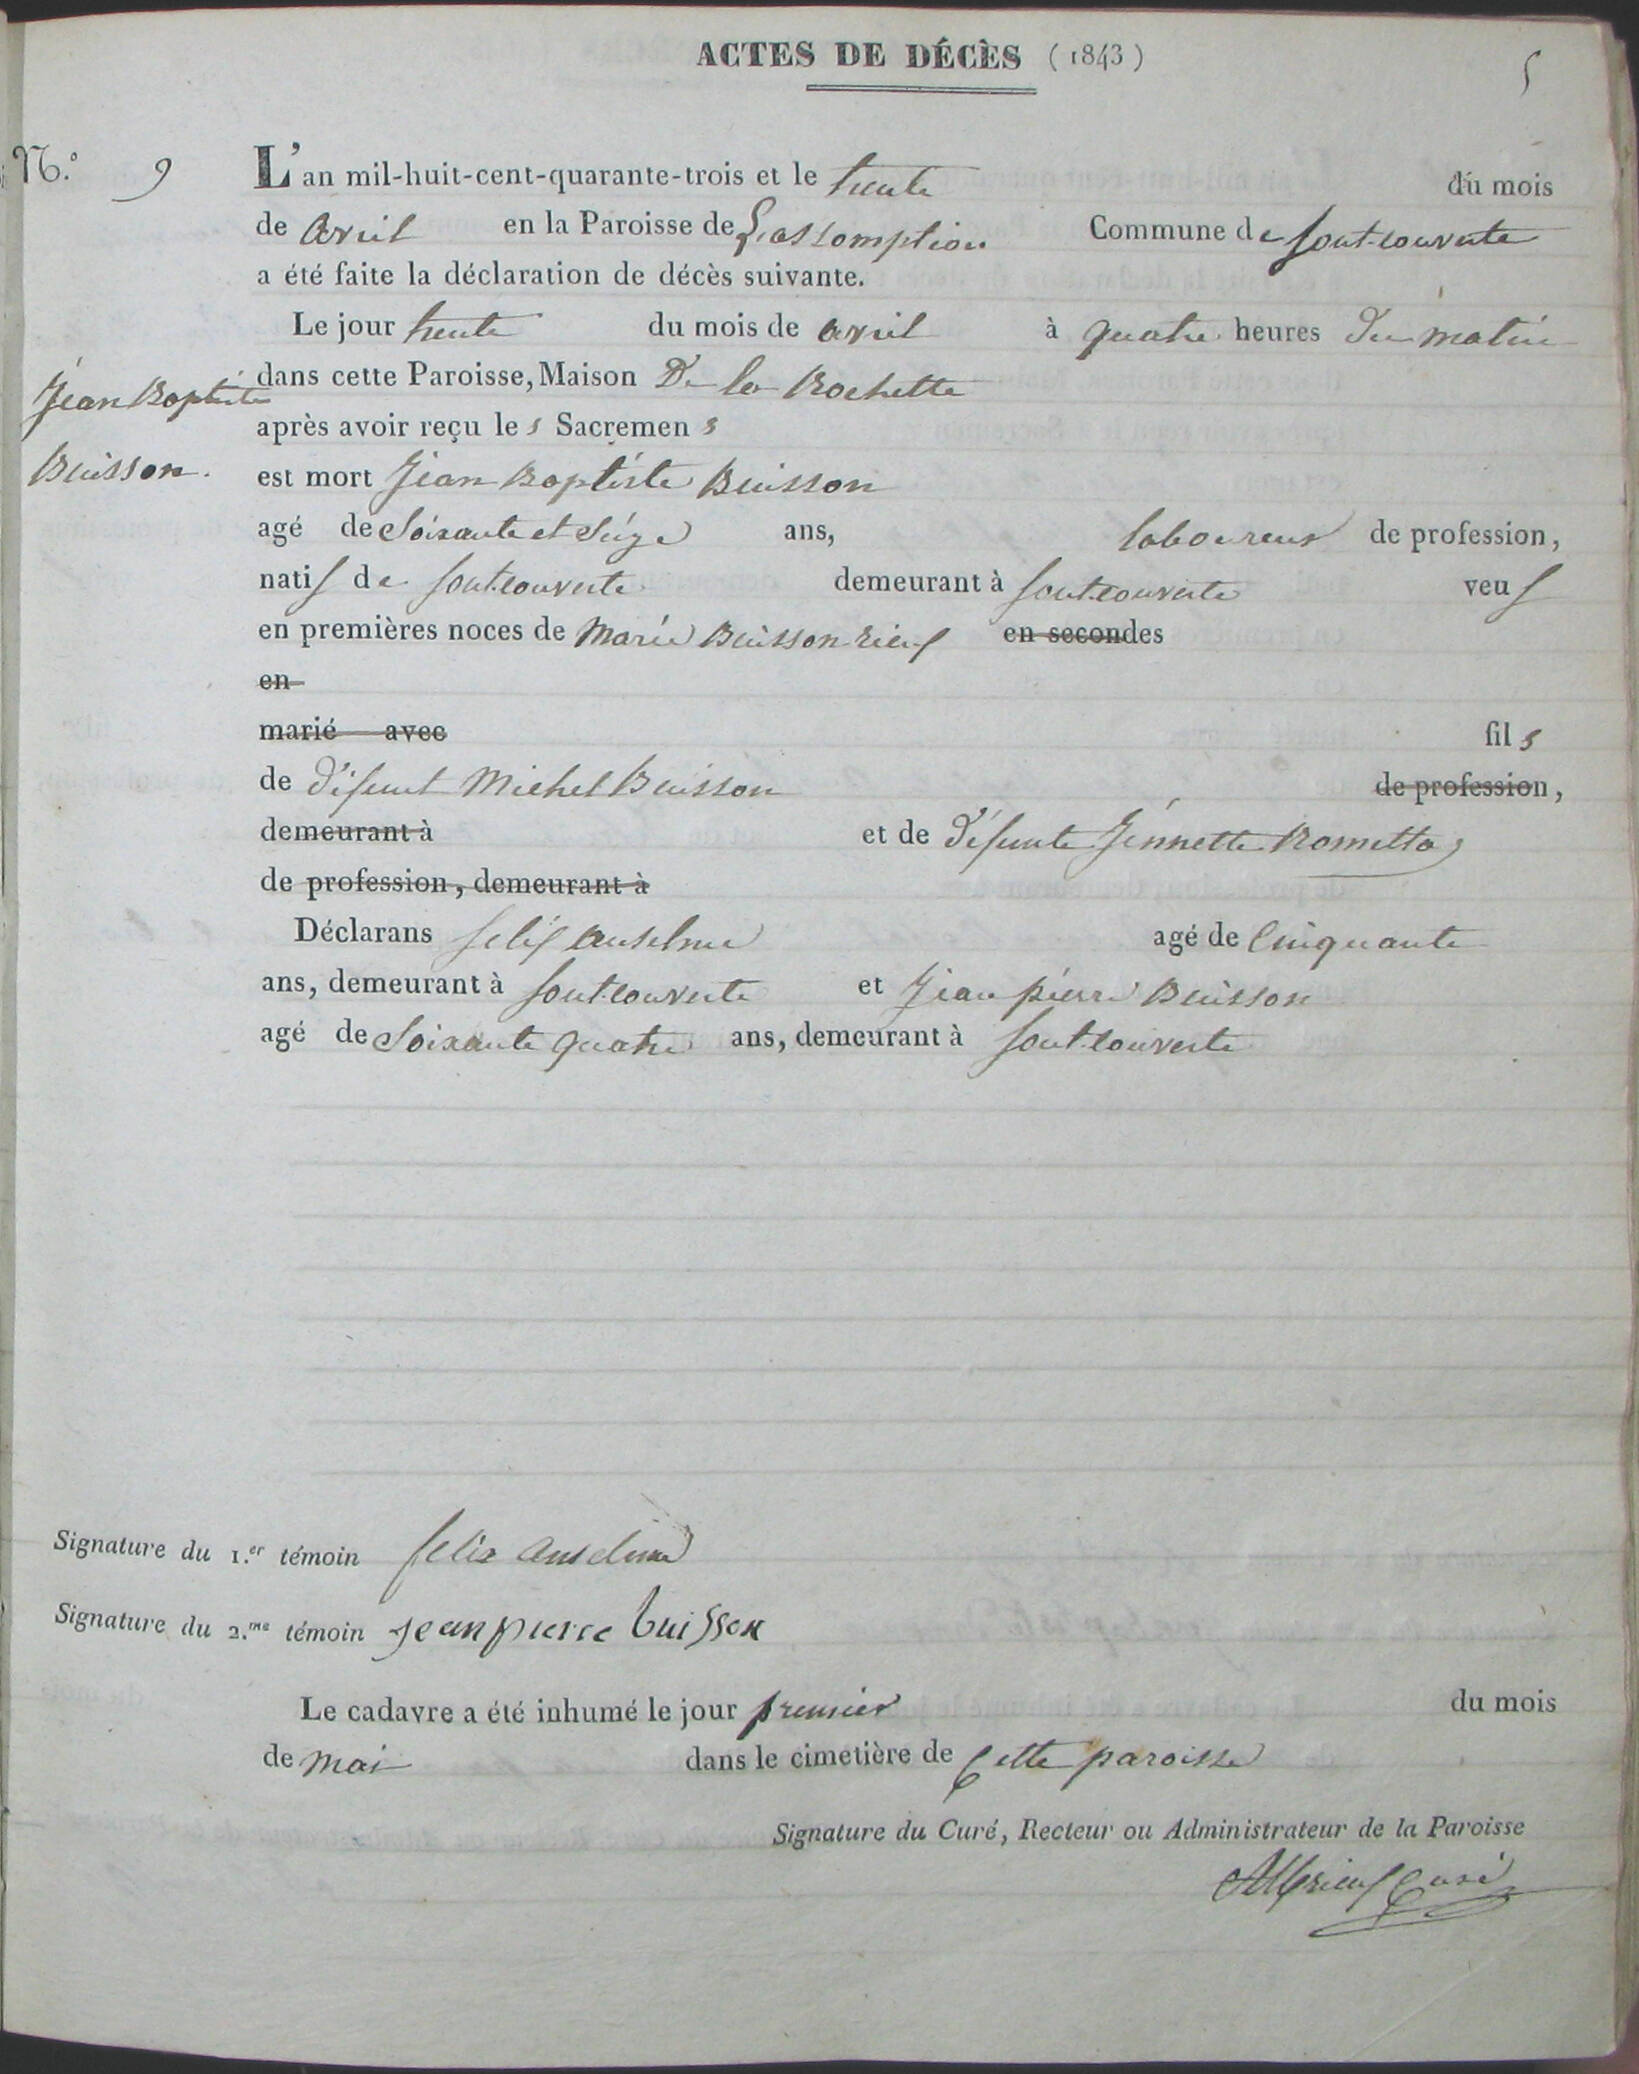 ACTES DE DÉCÈS (1843)
5
N.º 9
L'an mil-huit-cent-quarante-trois et le trente du mois
de avril en la Paroisse de L'assomption Commune de fontcouverte
a été faite la déclaration de décès suivante.
Le jour trente du mois de avril à quatre heures du matin
dans cette Paroisse, Maison De la Rochette
Jean Baptiste
après avoir reçu les Sacremens
Buisson.
est mort Jean Baptiste Buisson
agé de Soixante et Seize ans, laboureur de profession,
natif de fontcouverte demeurant à fontcouverte veuf
en premières noces de Marie Buisson rieuf en secondes
en
marié avec fils
de défunt Michel Buisson de profession,
demeurant à et de défunte Jénnette Rometta
de profession, demeurant à
Déclarans felix Anselme agé de Cinquante
ans, demeurant à fontcouverte et Jean pierre Buisson
agé de Soixante quatre ans, demeurant à fontcouverte
Signature du 1.er témoin felix anselme
Signature du 2.me témoin jean pierre buisson
Le cadavre a été inhumé le jour premier du mois
de mai dans le cimetière de Cette paroisse
Signature du Curé, Recteur ou Administrateur de la Paroisse
Curé